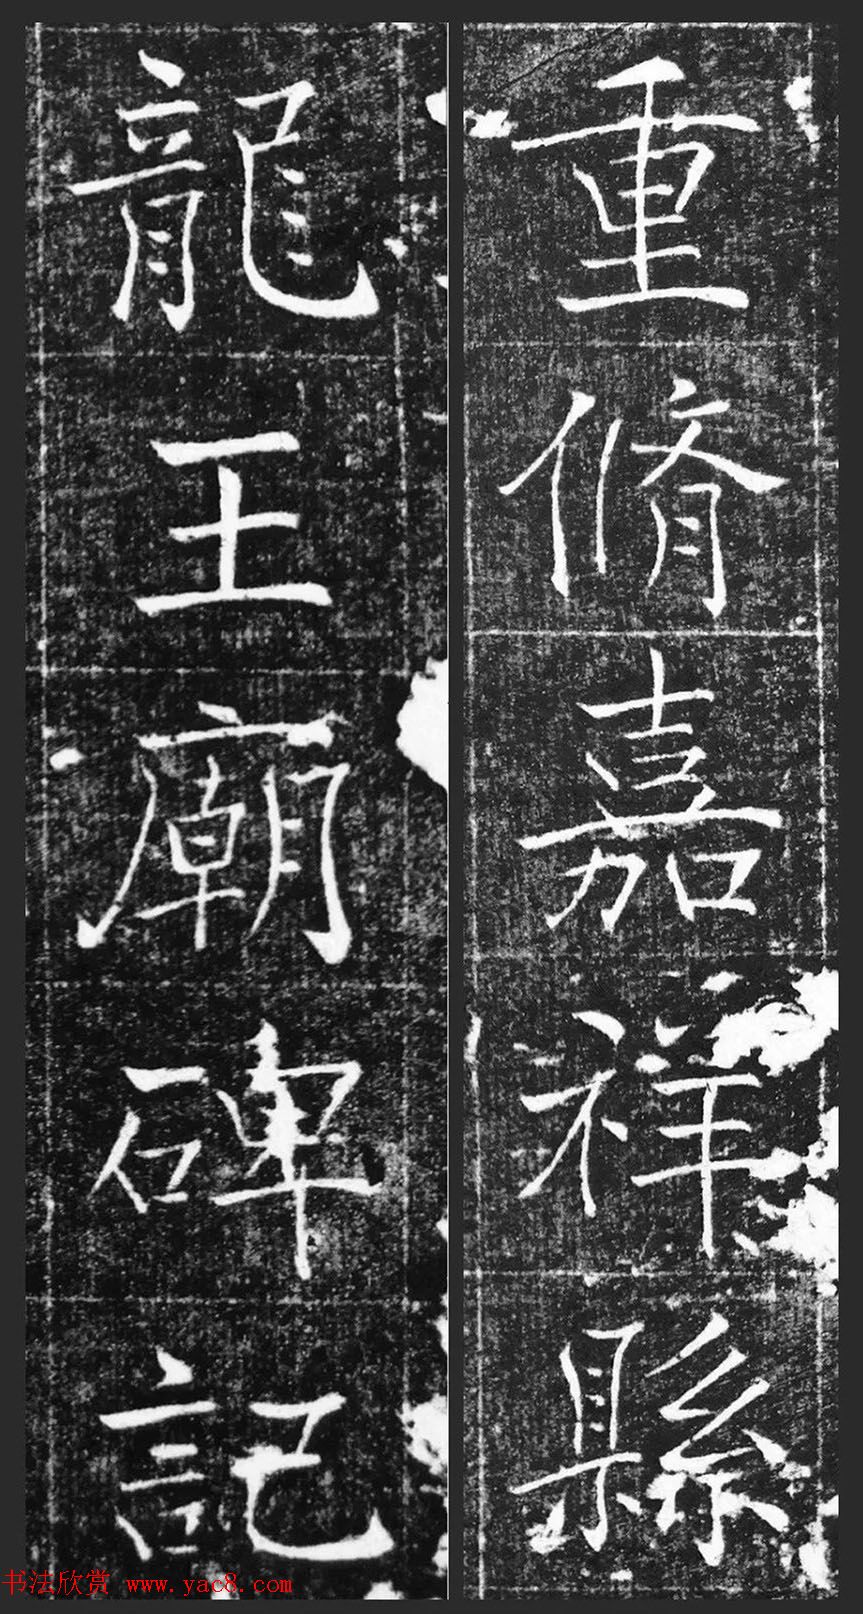 重脩嘉祥縣
龍王廟碑記
书法欣赏 www.yac8.com